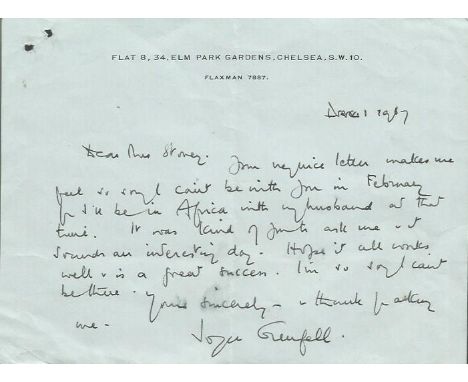 FLAT 8, 34, ELM PARK GARDENS, CHELSEA, S.W. 10.
FLAXMAN 7887.
1967
Dear Miss Stoney. Your very nice letter makes me
feel so sorry I can't be with you in February
for I'll be in Africa with my husband at that
time. It was kind of you to ask me & it
sounds an interesting day. Hope it all works
well & is a great success. I'm so sorry I can't
be there. Yours sincerely - & thank for asking
me -
Joyce Grenfell.